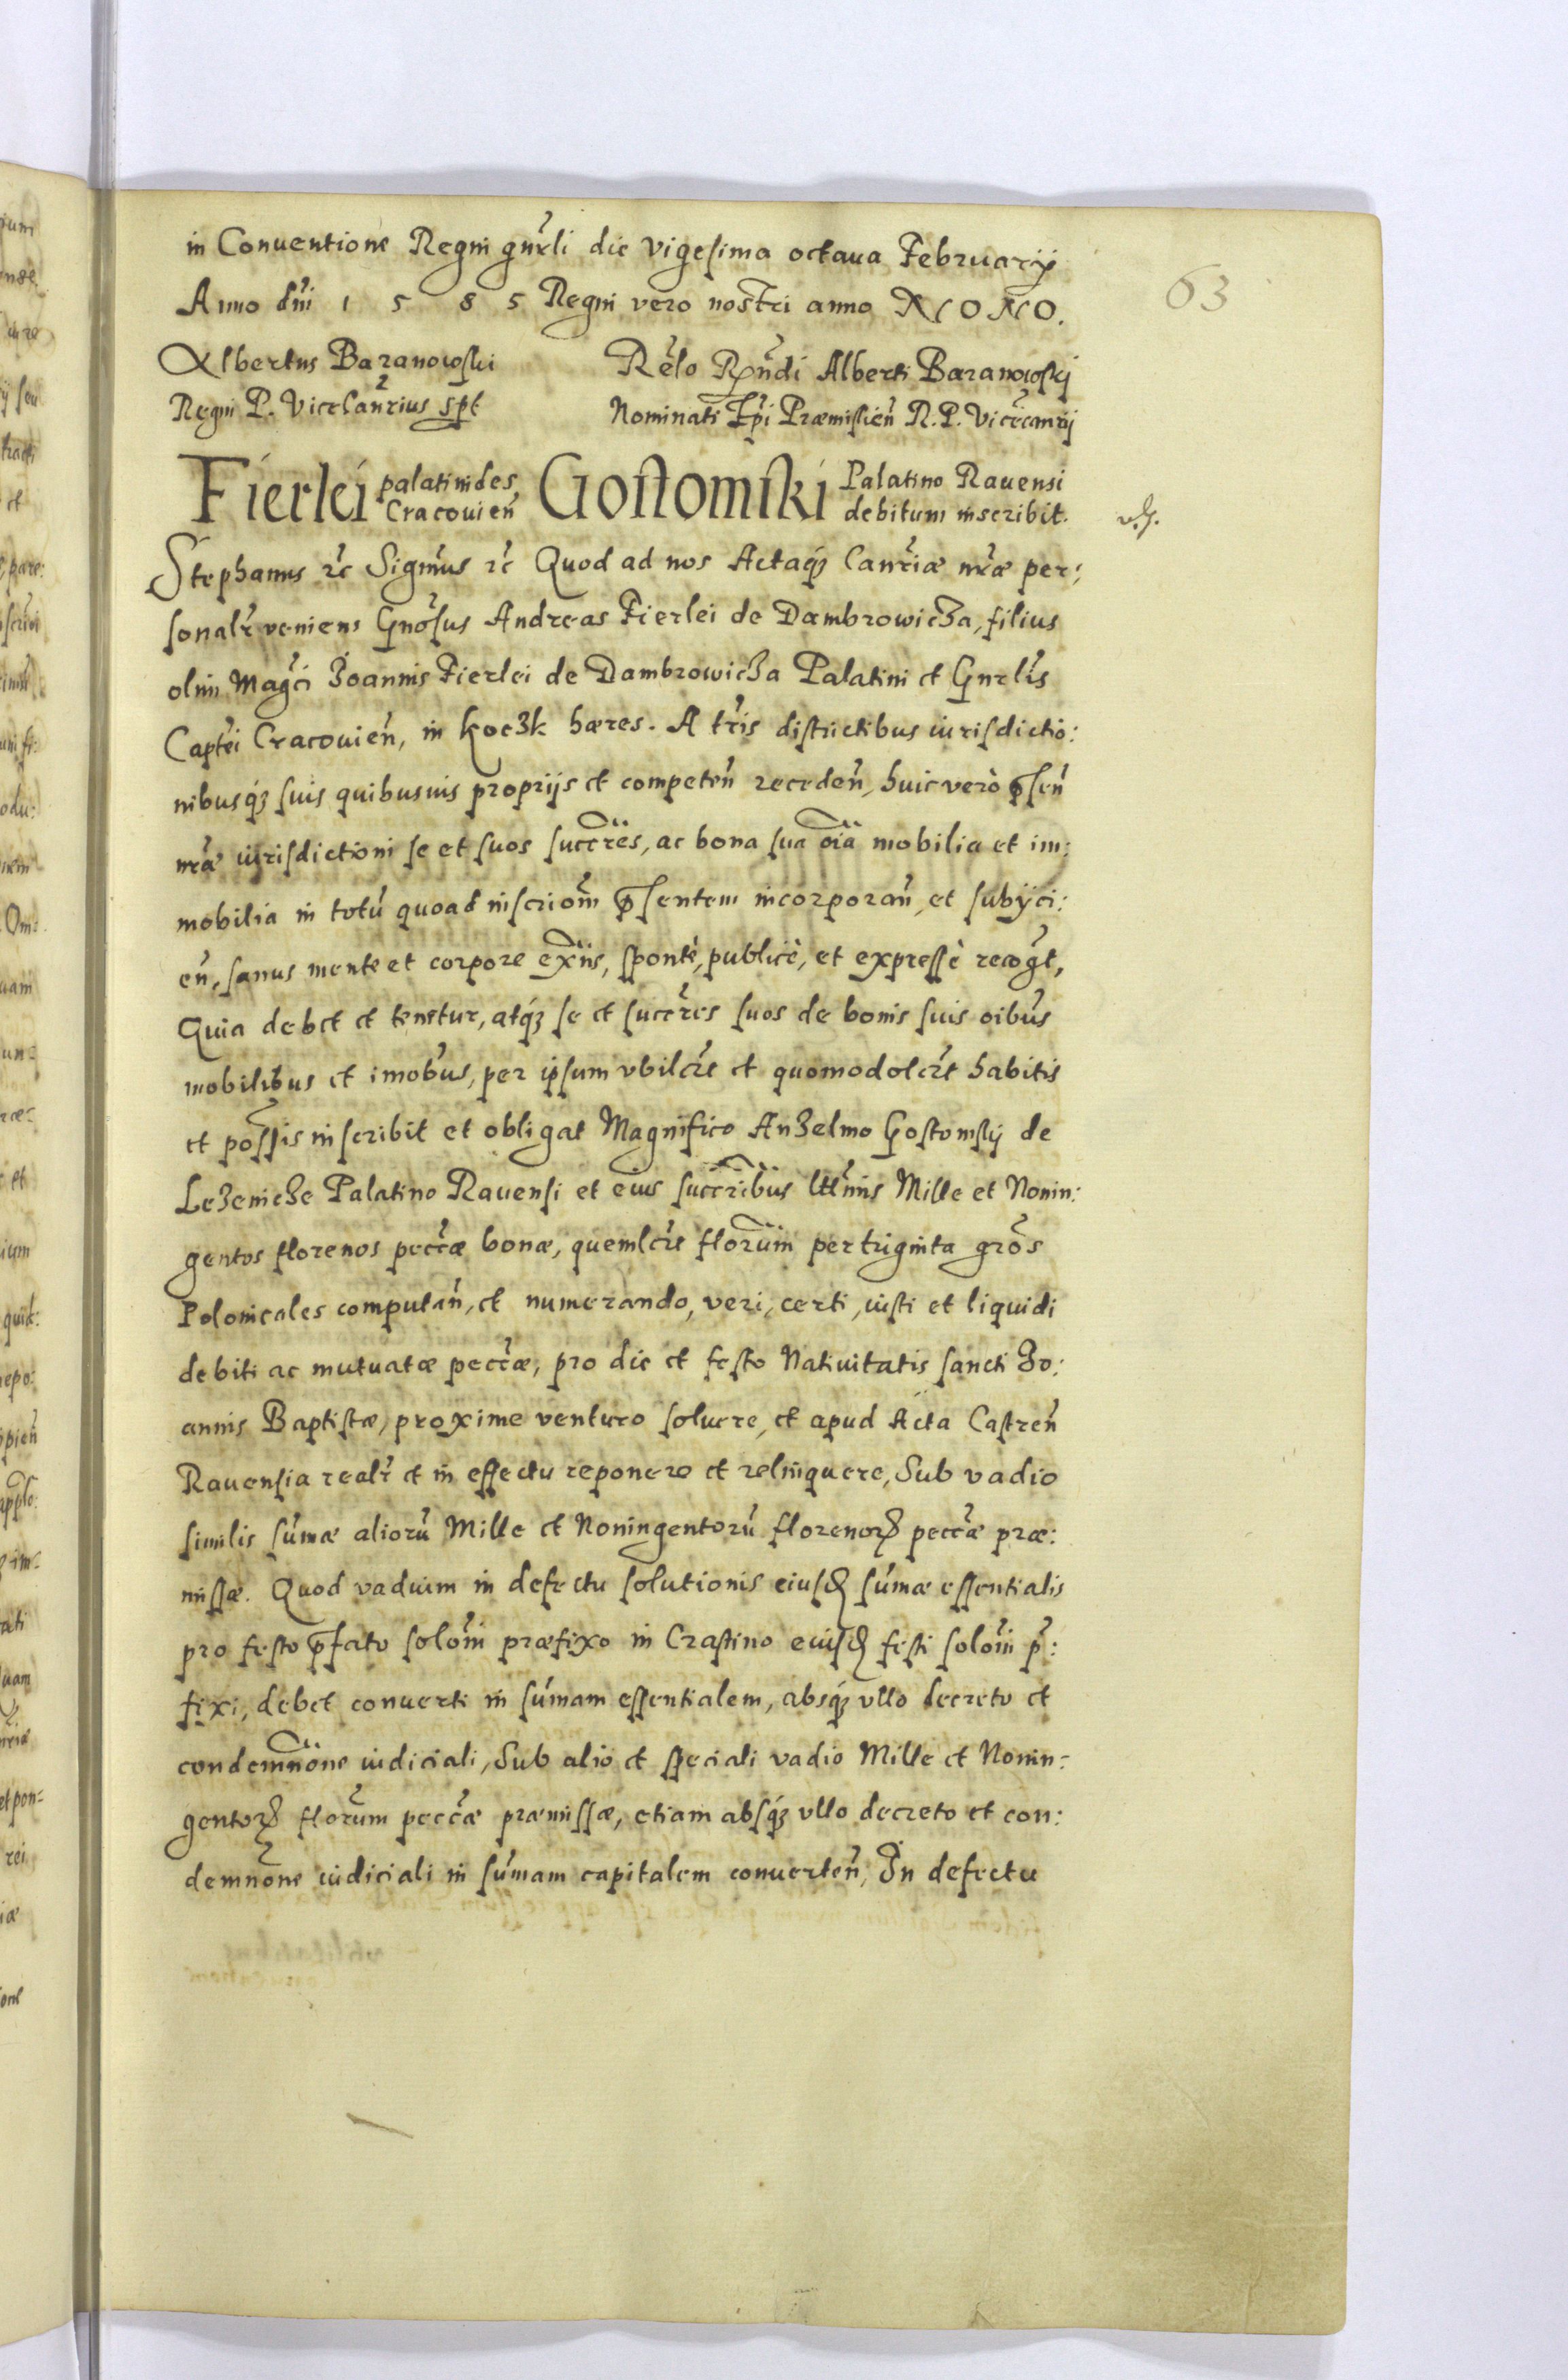 in Conuentione Regni gnrli die vigesima octaua Februarij
63
Anno dni 1 5 8 5 Regni vero nostri anno NONO.
Albertus Baranowski
Regni P. Vicecanrius spt
Relo Rndi Alberti Baranowskij
Nominati Epi Præmislien R. P. Vicecanrij
Fierlei palatinides Cracouien Gostomski Palatino Rauensi debitum inscribit.
Stephanus rc Sigmus rc Quod ad nos Actaq3 Canriæ nræ per:
sonalr veniens Gnosus Andreas Fierlei de Dambrowicza, filius
olim Magci Joannis Fierlei de Dambrowicza Palatini et Gnrlis
Captei Cracouien, in Koczk hæres. A tris districtibus iurisdictio:
nibusq3 suis quibusuis proprijs et competen receden, huic verò psen
nræ iurisdictioni se et suos succres, ac bona sua oia mobilia et im:
mobilia in totu quoad inscriom psentem incorporan, et subijci:
en, sanus mente et corpore exns, spontè, publicè, et expressè recogt,
Quia debet et tenetur, atq3 se et succres suos de bonis suis oibus
mobilibus et imobus, per ipsum vbilcre et quomodolcre habitis
et possis inscribit et obligat Magnifico Anzelmo Gostomskij de
Lezenicze Palatino Rauensi et eius succribus lttimis Mille et Nonin:
gentos florenos peccæ bonæ, quemlcre florum per triginta gros
Polonicales computan, et numerando, veri, certi, iusti et liquidi
debiti ac mutuatæ peccæ, pro die et festo Natiuitatis sancti Jo:
annis Baptistæ, proxime venturo soluere, et apud Acta Castren
Rauensia realr et in effectu reponere et relinquere, Sub vadio
similis sumæ alioru Mille et Noningentoru florenor peccæ præ:
missæ. Quod vadium in defectu solutionis eiusd sumæ essentialis
pro festo pfato solom præfixo in Crastino eiusd festi solom p:
fixi, debet conuerti in sumam essentialem, absq3 vllo decreto et
condemnone iudiciali, Sub alio et speciali vadio Mille et Nonin:
gentor florum peccæ præmissæ, etiam absq3 vllo decreto et con:
demnone iudiciali in sumam capitalem conuerten, In defectu